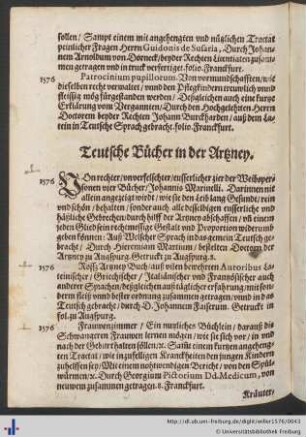 sollen / Sampt einem mit angehengten vnd nützlichen Tractat
peinlicher Fragen Herrn Guidonis de Susaria, Durch Johan-
nem Arnoldum von Dorneck / beyder Rechten Licentiaten zusam-
men getragen vnd in truck verfertiget. folio. Franckfurt.
1576 Patrocinium pupillorum. Von vormundschafften / wie
dieselben recht verwaltet / vnnd den Pflegkindern trewlich vnnd
fleissig mög fürgestanden werden / Deßgleichen auch eine kurtze
Erklärung vom Ver / Durch den Hochgelehrten Herrn
Doctorem beyder Rechten Johann Burckharden / auß dem La-
tein in Teutsche Sprach gebracht. folio. Franckfurt.
Teutsche Bücher in der Artzney.
1576 Von rechter / vnverfelschter / eusserlicher zier der Weibsper-
sonen vier Bücher / Johannis Marinelli. Darinnen nit
allein angezeigt wirdt / wie sie den Leib lang Gesundt / rein
vnd schön / behalten / sonder auch alle desselbigen eusserliche vnd
häßliche Gebrechen / durch hilff der Artzney abschaffen / vñ einem
jeden Glied sein rechtmessige Gestalt vnd Proportion widerumb
geben können: Auß Welscher Sprach in das gemein Teutsch ge-
bracht / Durch Hieremiam Martium / bestelten Doctorn der
Artzney zu Augspurg. Getruckt zu Augspurg. 8.
1576 Roß Artzney Buch / auß vielen bewehrten Autoribus La-
teinischer / Griechischer / Italiänischer vnd Frantzösischer auch
anderer Sprachen / deßgleichen auß täglicher erfahrung / mit son-
derm fleiß vnnd bester ordnung zusammen getragen / vnnd in das
Teutsch gebracht / durch D. Johannem Faistrum. Getruckt in
fol. zu Augspurg.
1576 Frauwenzimmer / Ein nutzliches Büchlein / darauß die
Schwangeren Frauwen lernen mögen / wie sie sich vor / in vnd
nach der Geburt halten söllen / ꝛc. Sampt einem kurtzen angeheng-
ten Tractat / wie in zufelligen Kranckheiten den jungen Kindern
zuhelffen sey / Mit einem nohtwendigen Bericht / von den Spül-
würmen / ꝛc. Durch Georgium Pictorium Dd. Medicum, von
neuwem zusammen getragen. 8. Franckfurt.
Kräuter,
http://dl.ub.uni-freiburg.de/diglit/willer1576/0043
Universitätsbibliothek Freiburg